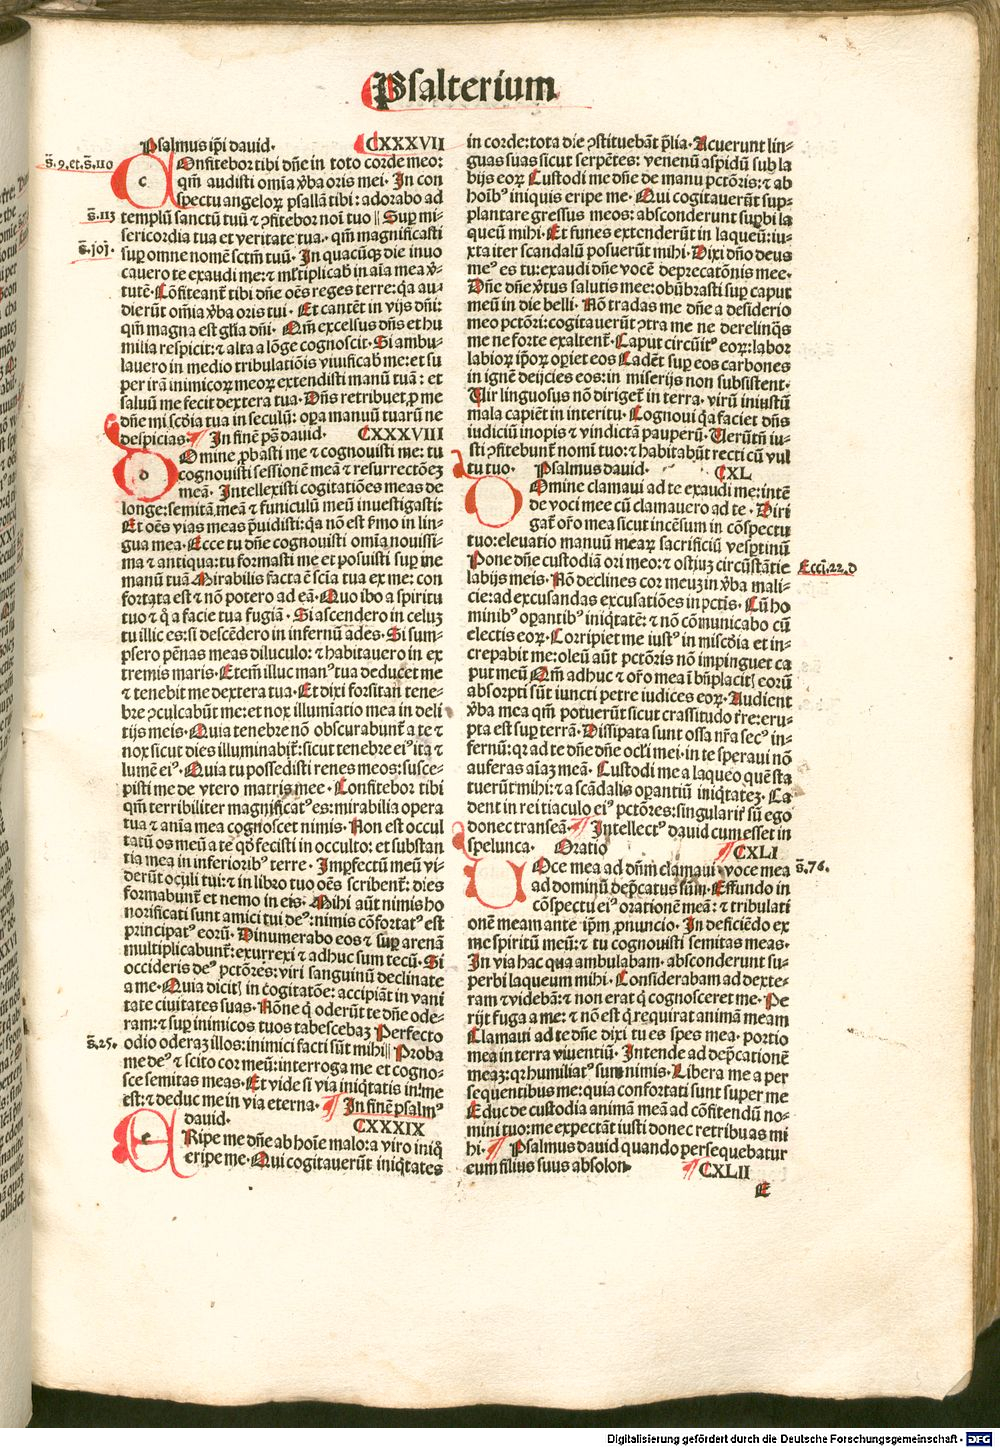 Psalterium
Psalmus ip̄i dauid. CXXXVII
s̄.9.et.s̄.110
COnfitebor tibi dn̄e in toto corde meo:
qm̄ audisti om̄ia v̄ba oris mei. In con
spectu angeloꝝ psallā tibi: adorabo ad
s̄.113
templū sanctū tuū ⁊ ꝯfitebor noī tuo || Suꝑ mi-
sericordia tua et veritate tua. qm̄ magnificasti
s̄.joj.
suꝑ omne nomē sctm̄ tuū. In quacūqꝫ die inuo
cauero te exaudi me: ⁊ mĺtiplicab̄ in aīa mea v̄-
tutē. Cōfiteant̄ tibi dn̄e oēs reges terre: qꝛ au-
dierūt om̄ia v̄ba oris tui. Et cantēt in vijs dn̄i:
qm̄ magna est gl̄ia dn̄i. Qm̄ excelsus dn̄s et hu
milia respicit: ⁊ alta a lōge cognoscit. Si ambu-
lauero in medio tribulatiōis viuificab̄ me: et su
per irā inimicoꝝ meoꝝ extendisti manū tuā: et
saluū me fecit dextera tua. Dn̄s retribuet ꝓ me
dn̄e mīscd̄ia tua in seculū: oꝑa manuū tuarū ne
despicias. In finē ps̄ dauid. CXXXVIII
DOmine ꝓbasti me ⁊ cognouisti me: tu
cognouisti sessionē meā ⁊ resurrectōeꝫ
meā. Intellexisti cogitatiōes meas de
longe: semitā meā ⁊ funiculū meū inuestigasti:
Et oēs vias meas p̄uidisti: qꝛ nō est s̄mo in lin-
gua mea. Ecce tu dn̄e cognouisti om̄ia nouissi-
ma ⁊ antiqua: tu formasti me et posuisti suꝑ me
manū tuā Mirabilis facta ē scīa tua ex me: con
fortata est ⁊ nō potero ad eā. Quo ibo a spiritu
tuo ⁊ q̊ a facie tua fugiā. Si ascendero in celuꝫ
tu illic es: si descēdero in infernū ades. Si sum-
psero pēnas meas diluculo: ⁊ habitauero in ex
tremis maris. Etem̄ illuc manꝰ tua deducet me
⁊ tenebit me dextera tua. Et dixi forsitan tene-
bre ꝯculcabūt me: et nox illumīatio mea in deli
tijs meis. Quia tenebre nō obscurabunt̄ a te ⁊
nox sicut dies illuminabit̄: sicut tenebre eiꝰ ita ⁊
lumē eiꝰ. Quia tu possedisti renes meos: susce-
pisti me de vtero matris mee. Confitebor tibi
qm̄ terribiliter magnificatꝰ es: mirabilia opera
tua ⁊ anīa mea cognoscet nimis. Non est occul
tatū os meū a te qd̄ fecisti in occulto: et substan
tia mea in inferioribꝰ terre. Imꝑfectū meū vi-
derūt oculi tui: ⁊ in libro tuo oēs scribent̄: dies
formabunt̄ et nemo in eis. Mihi aūt nimis ho
norificati sunt amici tui deꝰ: nimis cōfortatꝰ est
principatꝰ eorū. Dinumerabo eos ⁊ suꝑ arenā
multiplicabunt̄: exurrexi ⁊ adhuc sum tecū. Si
occideris deꝰ pctōres: viri sanguinū declinate
a me. Quia dicitꝭ in cogitatōe: accipiāt in vani
tate ciuitates suas. Nōne q̇ oderūt te dn̄e ode-
ram: ⁊ suꝑ inimicos tuos tabescebaꝫ Perfecto
s̄.25.
odio oderaꝫ illos: inimici facti sūt mihi || Proba
me deꝰ ⁊ scito cor meū: interroga me et cogno-
sce semitas meas. Et vide si via iniqtatis in me
est: ⁊ deduc me in via eterna. In finē psalmꝰ
dauid. CXXXIX
ERipe me dn̄e ab hoīe malo: a viro iniq̊
eripe me. Qui cogitauerūt iniqtates
in corde: tota die ꝯstituebāt p̄lia. Acuerunt lin-
guas suas sicut serpētes: venenū aspidū sub la
bijs eoꝝ Custodi me dn̄e de manu pctōris: ⁊ ab
hoībꝰ iniquis eripe me. Qui cogitauerūt sup-
plantare gressus meos: absconderunt suꝑbi la
queū mihi. Et funes extenderūt in laqueū: iu-
xta iter scandalū posuerūt mihi. Dixi dn̄o deus
meꝰ es tu: exaudi dn̄e vocē deprecatōnis mee.
Dn̄e dn̄e v̄tus salutis mee: obūbrasti suꝑ caput
meū in die belli. Nō tradas me dn̄e a desiderio
meo pctōri: cogitauerūt ꝯtra me ne derelinqs
me ne forte exaltent̄. Caput circūitꝰ eoꝝ: labor
labioꝝ ip̄oꝝ oꝑiet eos Cadēt suꝑ eos carbones
in ignē deijcies eos: in miserijs non subsistent.
Uir linguosus nō diriget̄ in terra. virū iniustū
mala capiēt in interitu. Cognoui qꝛ faciet dn̄s
iudiciū inopis ⁊ vindictā pauperū. Uerūtn̄ iu-
sti ꝯfitebunt̄ nomī tuo: ⁊ habitabūt recti cū vul
tu tuo. Psalmus dauid. CXL
DOmine clamaui ad te exaudi me: intēde
de voci mee cū clamauero ad te. Diri
gat̄ or̄o mea sicut incēsum in cōspectu
tuo: eleuatio manuū mearꝝ sacrificiū vesꝑtinū
Pone dn̄e custodiā ori meo: ⁊ ostiuꝫ circūstātie
Eccī.22.d
labijs meis. Nō declines cor meuꝫ in v̄ba mali-
cie: ad excusandas excusatiōes in pctīs. Cū ho
minibꝰ oꝑantibꝰ iniqtatē: ⁊ nō cōmunicabo cū
electis eoꝝ. Corripiet me iustꝰ in miscd̄ia et in-
crepabit me: oleū aūt pctōris nō impinguet ca
put meū Qm̄ adhuc ⁊ or̄o mea ī bn̄placitꝭ eorū
absorpti sūt iuncti petre iudices eoꝝ. Audient
v̄ba mea qm̄ potuerūt sicut crassitudo tr̄e: eru-
pta est suꝑ terrā. Dissipata sunt ossa nr̄a secꝰ in-
fernū: qꝛ ad te dn̄e dn̄e oclī mei. in te speraui nō
auferas aīaꝫ meā. Custodi me a laqueo quē sta
tuerūt mihi: ⁊ a scādalis oꝑantiū iniqtateꝫ. Ca
dent in retiaculo eiꝰ pctōres: singularit̄ sū ego
donec transeā. Intellectꝰ dauid cum esset in
spelunca. Oratio CXLI
s̄.76.
UOce mea ad dn̄m clamaui. voce mea
ad dominū dep̄catus sum. Effundo in
cōspectu eiꝰ orationē meā: ⁊ tribulati
onē meam ante ip̄m ꝓnuncio. In deficiēdo ex
me spiritū meū: ⁊ tu cognouisti semitas meas.
In via hac qua ambulabam. absconderunt su-
perbi laqueum mihi. Considerabam ad dexte-
ram ⁊ videbā: ⁊ non erat q̇ cognosceret me. Pe
rijt fuga a me: ⁊ nō est q̇ requirat animā meam
Clamaui ad te dn̄e dixi tu es spes mea. portio
mea in terra viuentiū. Intende ad dep̄cationē
meaꝫ: qꝛ humiliatꝰ sum nimis. Libera me a per
sequentibus me: quia confortati sunt super me
Educ de custodia animā meā ad cōfitendū no-
mini tuo: me expectāt iusti donec retribuas mi
hi. Psalmus dauid quando persequebatur
eum filius suus absolon. CXLII
E
Digitalisierung gefördert durch die Deutsche Forschungsgemeinschaft - DFG